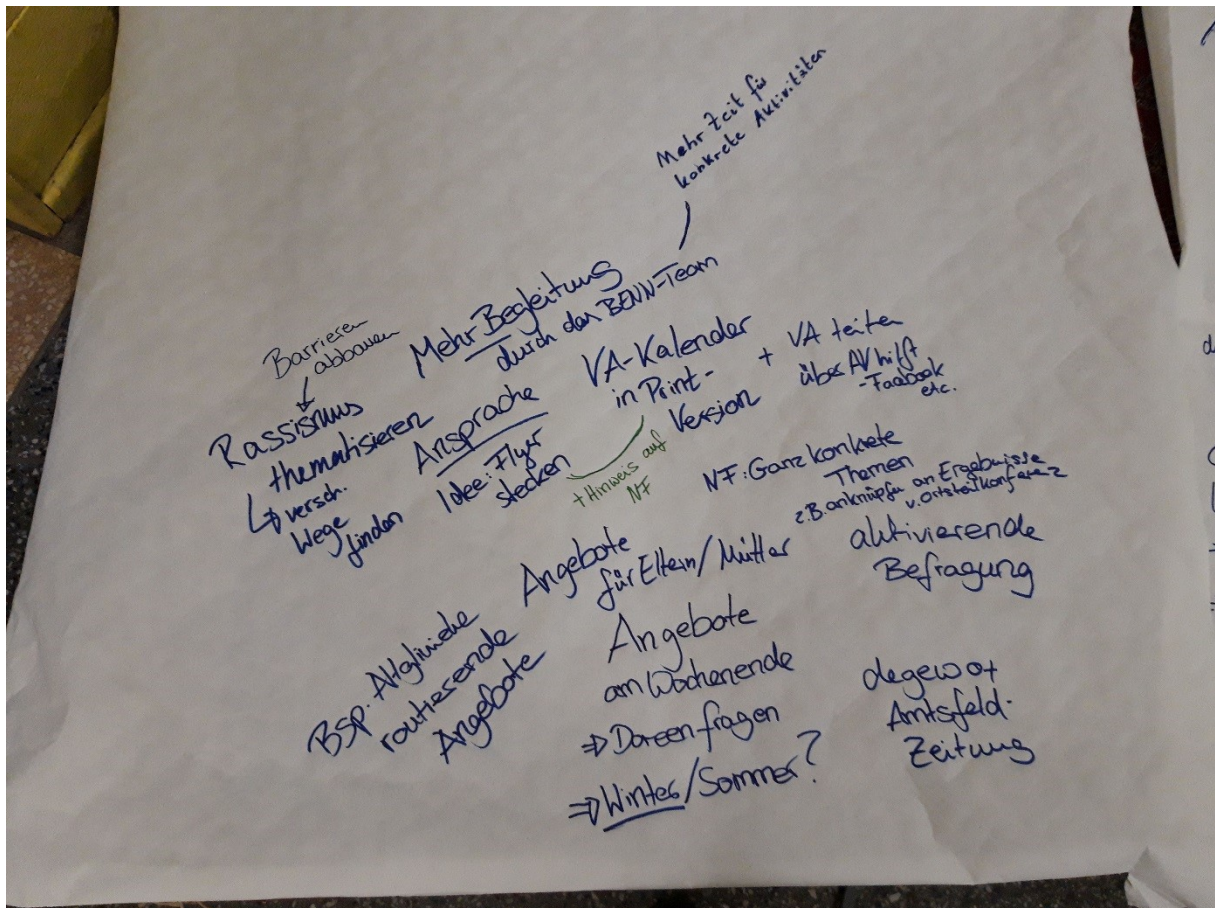 Mehr Zeit für
konkrete Aktivitäten
Mehr Begleitung
durch das BENN-Team
Barrieren
abbauen
Rassismus
thematisieren
versch.
Wege
finden
Ansprache
Idee: Flyer
stecken
+ Hinweis auf
NF
VA-Kalender
in Print-
Version
+ VA teilen
über AV hilft
- Facebook
etc.
NF: Ganz konkrete
Themen
z.B. anknüpfen an Ergebnisse
v. Ortsteilkonferenz
Angebote
für Eltern/Mütter
aktivierende
Befragung
Bsp. Altglinicke
routierende
Angebote
Angebote
am Wochenende
⇒ Doreen fragen
⇒ Winter/Sommer?
degewo +
Amtsfeld-
Zeitung